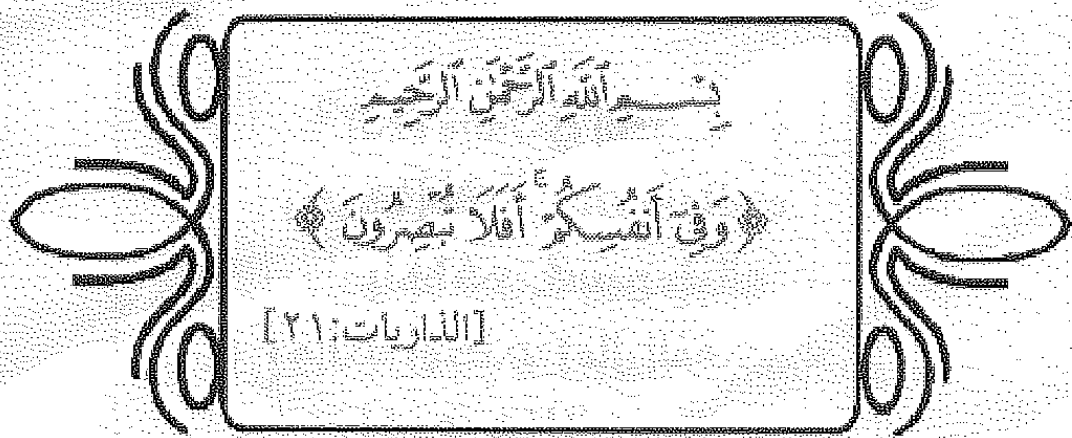 بِسْمِ ٱللَّهِ ٱلرَّحْمَٰنِ ٱلرَّحِيمِ
﴿وَفِىٓ أَنفُسِكُمْ ۚ أَفَلَا تُبْصِرُونَ﴾
[الذاريات:٢١]